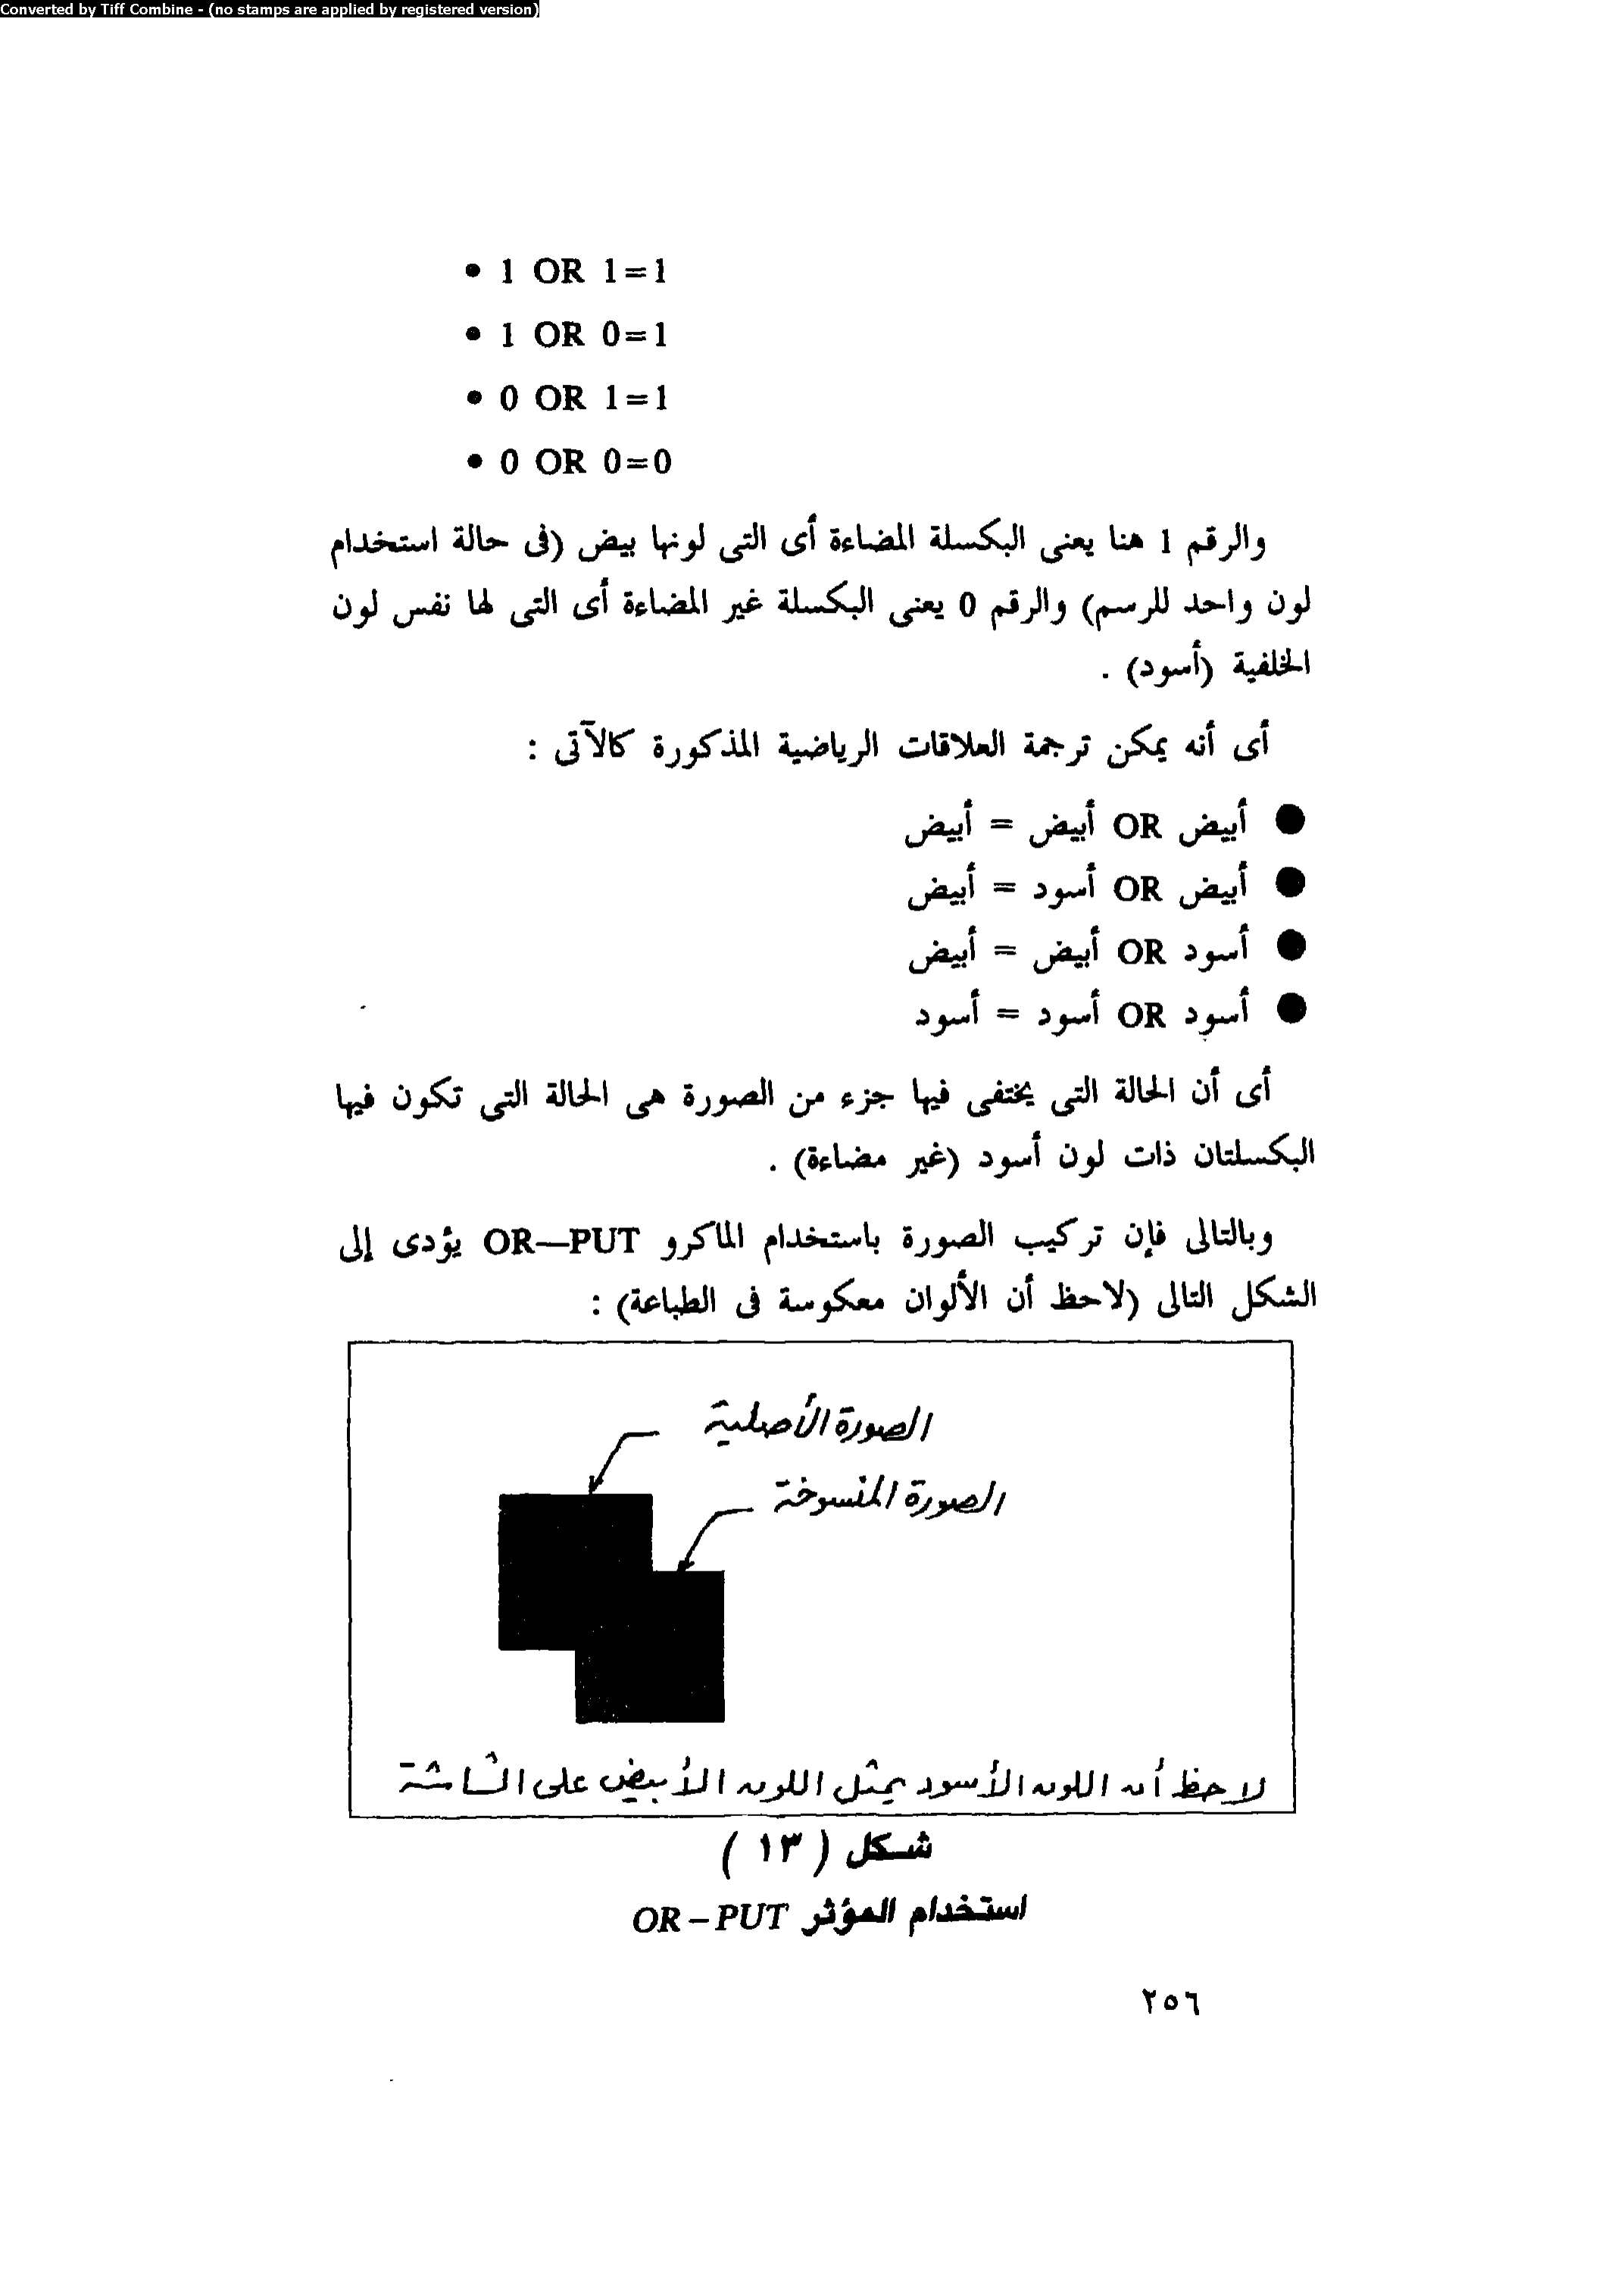 Converted by Tiff Combine - (no stamps are applied by registered version)
• 1 OR 1=1
• 1 OR 0=1
• 0 OR 1=1
• 0 OR 0=0
والرقم 1 هنا يعنى البكسلة المضاءة أى التى لونها بيض (فى حالة استخدام
لون واحد للرسم) والرقم 0 يعنى البكسلة غير المضاءة أى التى لها نفس لون
الخلفية (أسود) .
أى أنه يمكن ترجمة العلاقات الرياضية المذكورة كالآتى :
● أبيض OR أبيض = أبيض
● أبيض OR أسود = أبيض
● أسود OR أبيض = أبيض
● أسود OR أسود = أسود
أى أن الحالة التى يختفى فيها جزء من الصورة هى الحالة التى تكون فيها
البكسلتان ذات لون أسود (غير مضاءة) .
وبالتالى فإن تركيب الصورة باستخدام الماكرو OR—PUT يؤدى إلى
الشكل التالى (لاحظ أن الألوان معكوسة فى الطباعة) :
الصورة الأصلية
الصورة المنسوخة
لاحظ أن اللون الأسود يمثل اللون الأبيض على الشاشة
شكل ( ١٣ )
استخدام المؤثر OR – PUT
٢٥٦